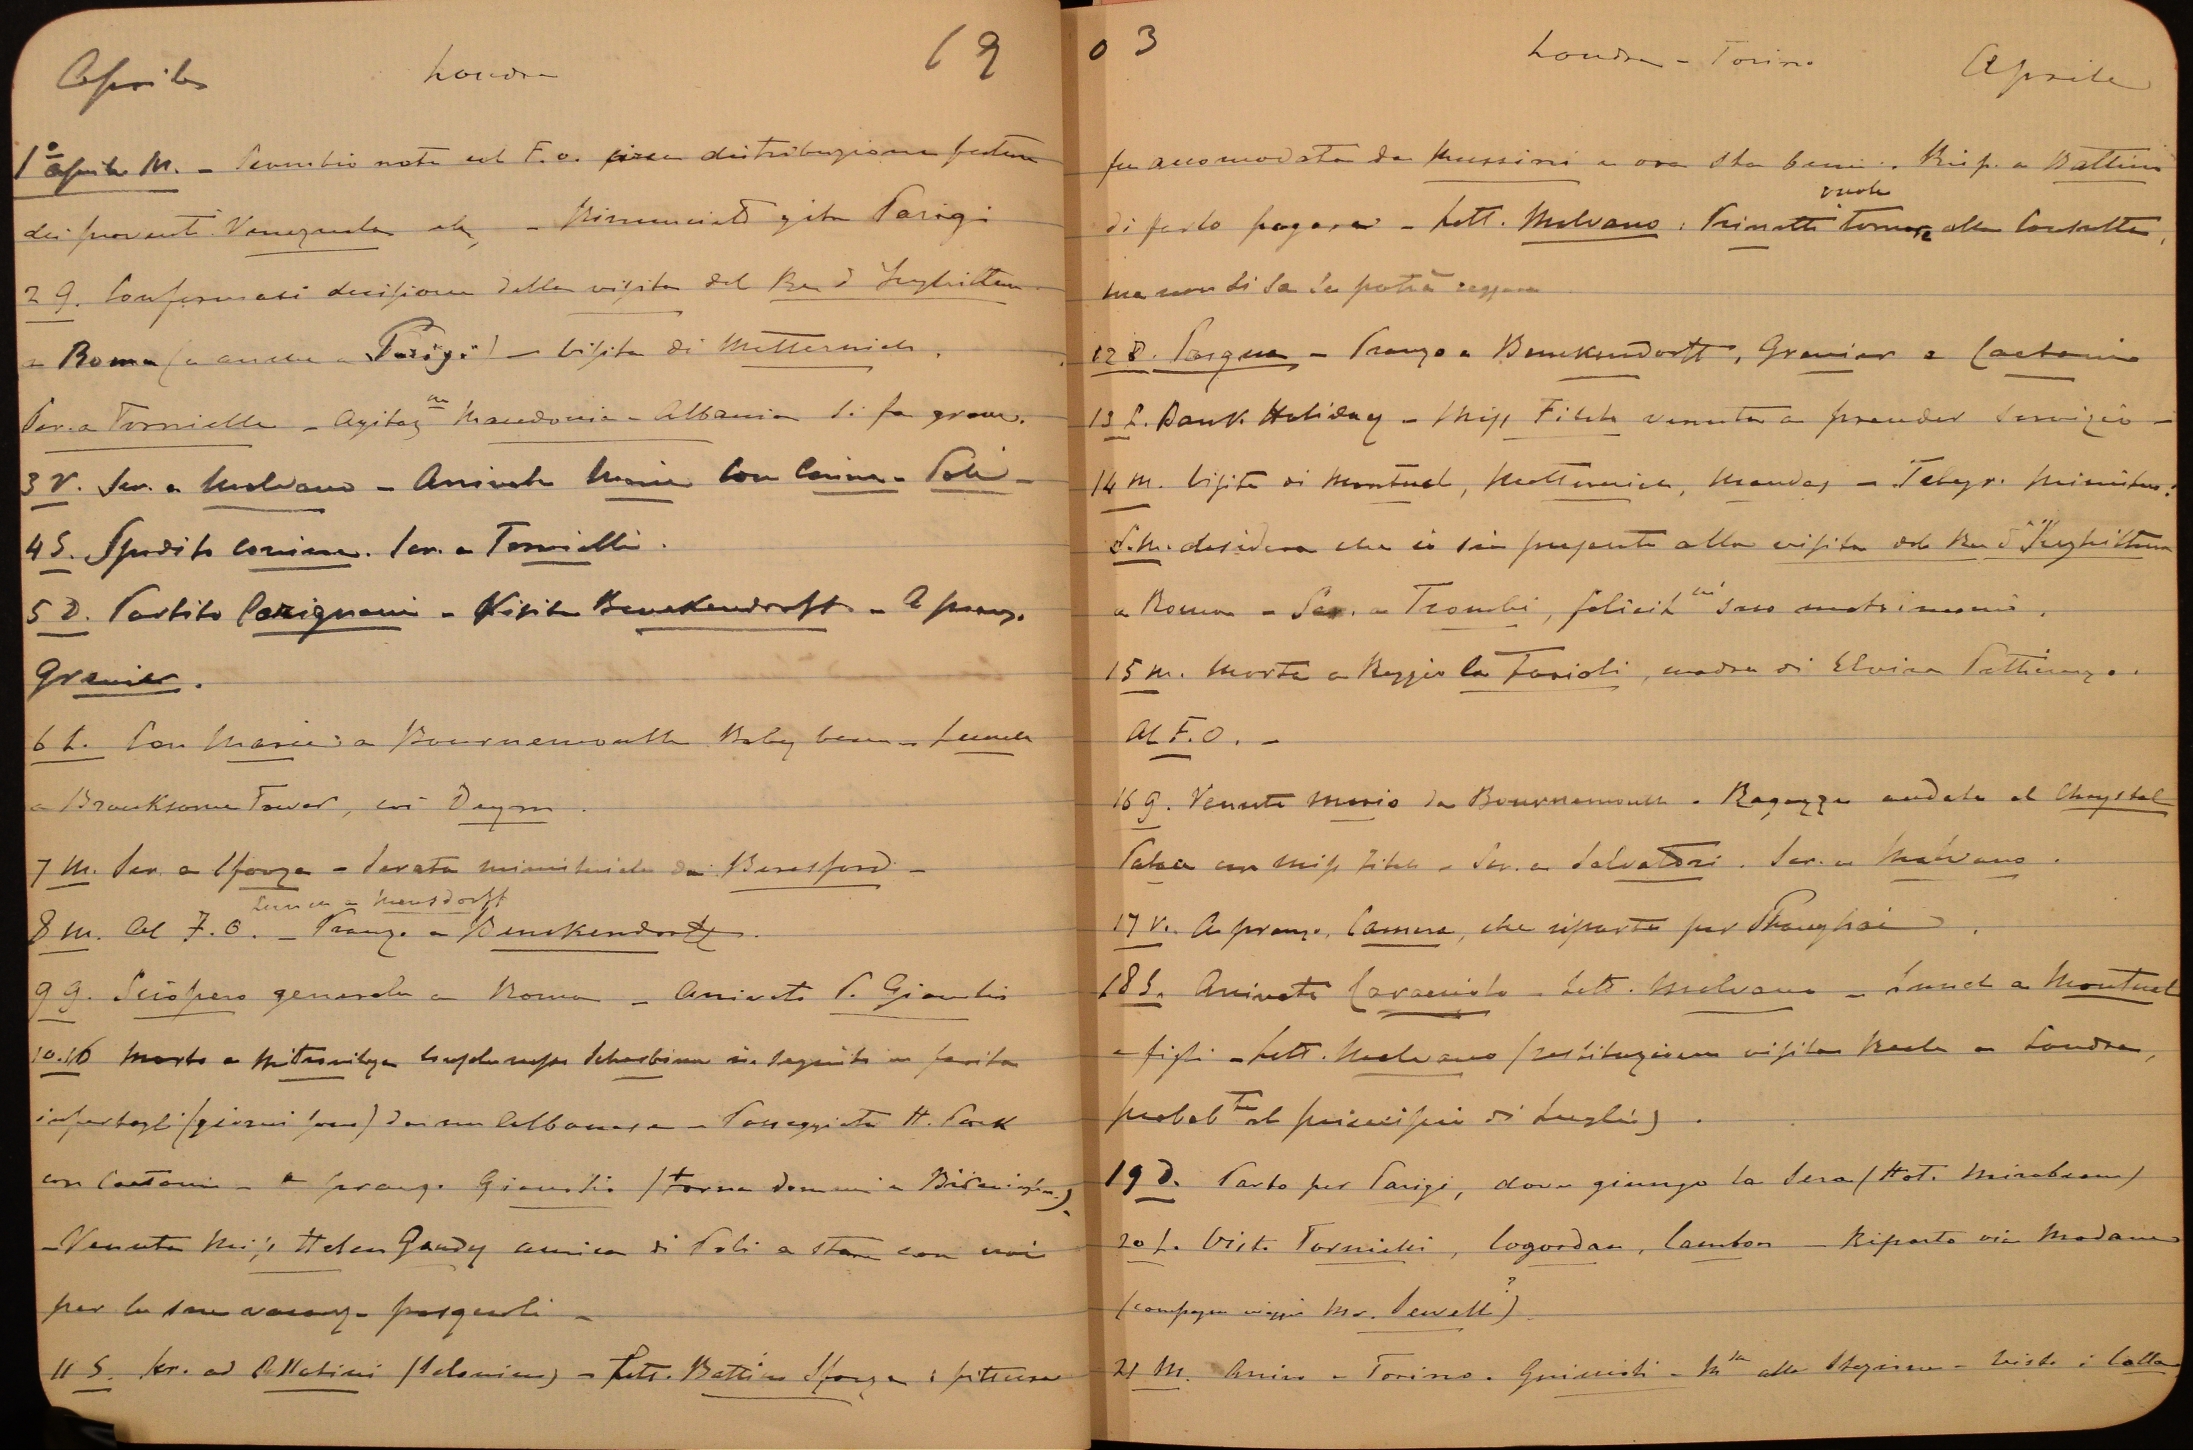 Aprile Londra 19
1° aprile M. - Scambio note col F.O. circa distribuzione future
dei proventi Venezuela etc, - Rinunciato gita Parigi
2 G. Confermasi decisione della visita del Re d'Inghilterra
a Roma (e anche a Parigi) - Visita di Metternich.
Scr. a Tornielli - Agitaz.ne Macedonia - Albania si fa grave.
3 V. Scr. a Malvano - Arrivata Maria con Camera - Poli -
4 S. Spedito corriere. Scr. a Tornielli.
5 D. Partito Carignani - Visita Benckendorff - A pranzo
Grenier.
6 L. Con Maria a Bournemouth Baby bene - Lunch
a Branksome Tower, coi Deym.
7 M. Scr. a Sforza - Serata ministeriale da Beresford -
Lunch a Mensdorff
8 M. Al F.O. - Pranzo a Benckendorff.
9 G. Sciopero generale a Roma - Arrivato P. Giorgio
10. V. Morto a Mitrovitza console russo Scherbina in seguito a ferita
infertagli (giorni sono) da un Albanese - Passeggiata H. Park
con Caetani - a pranzo (torna domani a)
- Venuta Miss Helen Gandy amica di Poli a stare con noi
per le sue vacanze pasquali -
11 S. Scr. ad Allatini (Salonicco) - Lett. Battino Sforza : pittura
03 Londra - Torino Aprile
fu accomodata da Mussini e ora sta bene. Risp. a Battino
di farlo pagare - Lett. Malvano : Prinetti vuole tornare alla Consulta,
ma non si sa se potrà reggere
12 D. Pasqua - Pranzo a Benckendorff, Grenier e Caetani
13 L. Bank Holiday - Miss Fitch venuta a prender servizio -
14 M. Visite di Montuel, Metternich, Mendes - Telegr. Ministero:
S.M. desidera che io sia presente alla visita del Re d'Inghilterra
a Roma - Scr. a Trombi, felicit.ni suo matrimonio.
15 M. Morta a Reggio la Farioli, madre di Elvira
Al F.O. -
16 G. Venuta Maria da Bournemouth - Ragazze andate al Chrystal
Palace con Miss Fitch - Scr. a Salvatori. Scr. a Malvano.
17 V. A pranzo, Camera, che riparte per Shanghai.
18 S. Arrivato Caracciolo - Lett. Malvano - Lunch a Montuel
e figli - Lett. Malvano (restituzione visita Reale a Londra,
probab.te al principio di Luglio).
19 D. Parto per Parigi, dove giungo la sera (Hot. Mirabeau)
20 L. Visto Tornielli, Logordan, Cambon - Riparto via Modane
(compagno viaggio Mr. Sewell?)
21 M. Arrivo a Torino. - alla Stazione - Visto i